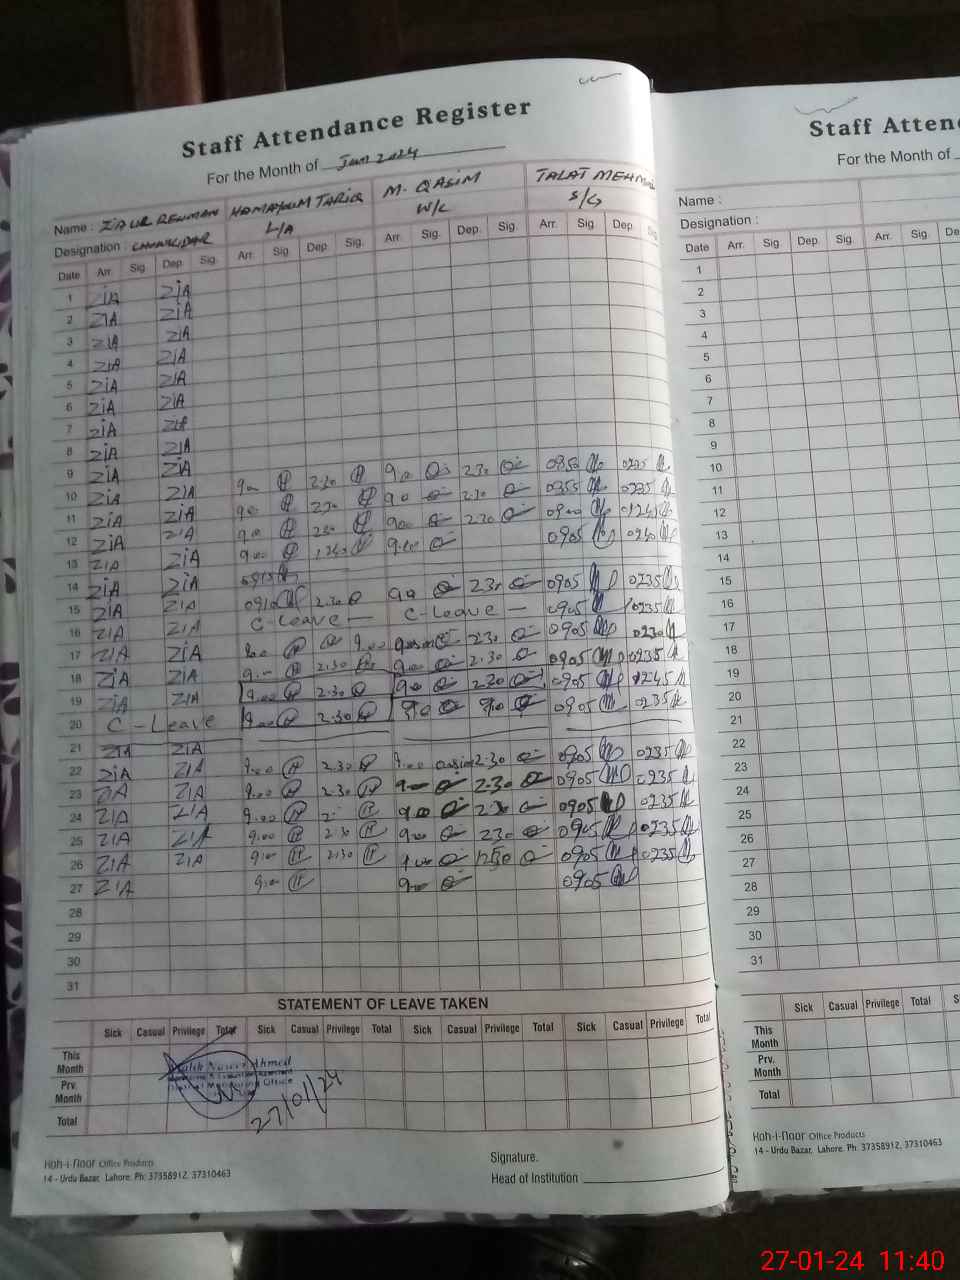 Staff Attendance Register
For the Month of Jan 2024
Name : ZIA UR REHMAN HAMAYUM TARIQ M. QASIM TALAT MEHM
Designation : CHOWKIDAR L/A W/C S/G
Date Arr. Sig. Dep. Sig. Arr. Sig. Dep. Sig. Arr. Sig. Dep. Sig. Arr. Sig. Dep. Sig.
1 ZIA ZIA
2 ZIA ZIA
3 ZIA ZIA
4 ZIA ZIA
5 ZIA ZIA
6 ZIA ZIA
7 ZIA ZIA
8 ZIA ZIA
9 ZIA ZIA 2.30 900 2.30 0850 0235
10 ZIA ZIA 900 900 2.30 0855 0235
11 ZIA ZIA 900 230 900 2.30 0900
12 ZIA ZIA 900 9.00 0905 0240
13 ZIA ZIA
14 ZIA ZIA 900 230 0905 0235
15 ZIA ZIA 0910 2.30 C-Leave 0905 0235
16 ZIA ZIA C-Leave 2.30 0905 0230
17 ZIA ZIA 900 2.30 900 2.30 0905 0235
18 ZIA ZIA 9.00 2.30 900 2.30 0905 0245
19 ZIA ZIA 9.00 2.30 900 0905 0235
20 C-Leave
21 ZIA ZIA 9.00 2.30 9.00 2.30 0905 0235
22 ZIA ZIA 9.00 2.30 9.00 2.30 0905 0235
23 ZIA ZIA 9.00 900 0905 0235
24 ZIA ZIA 9.00 2.30 900 230 0905 0235
25 ZIA ZIA 9.00 2.30 900 0905 0235
26 ZIA ZIA
27 ZIA 9.00 900 0905
28
29
30
31
STATEMENT OF LEAVE TAKEN
Sick Casual Privilege Total Sick Casual Privilege Total Sick Casual Privilege Total Sick Casual Privilege Total
This Month
Prv. Month
Total
Ahmed
Office
27/01/24
Signature.
Head of Institution
Koh-i-Noor Office Products
14 - Urdu Bazar, Lahore. Ph: 37358912, 37310463
Staff Atten
For the Month of
Name :
Designation :
Date Arr. Sig. Dep. Sig. Arr. Sig. Dep
1
2
3
4
5
6
7
8
9
10
11
12
13
14
15
16
17
18
19
20
21
22
23
24
25
26
27
28
29
30
31
Sick Casual Privilege Total Sick
This Month
Prv. Month
Total
Koh-i-Noor Office Products
14 - Urdu Bazar, Lahore. Ph: 37358912, 37310463
27-01-24 11:40